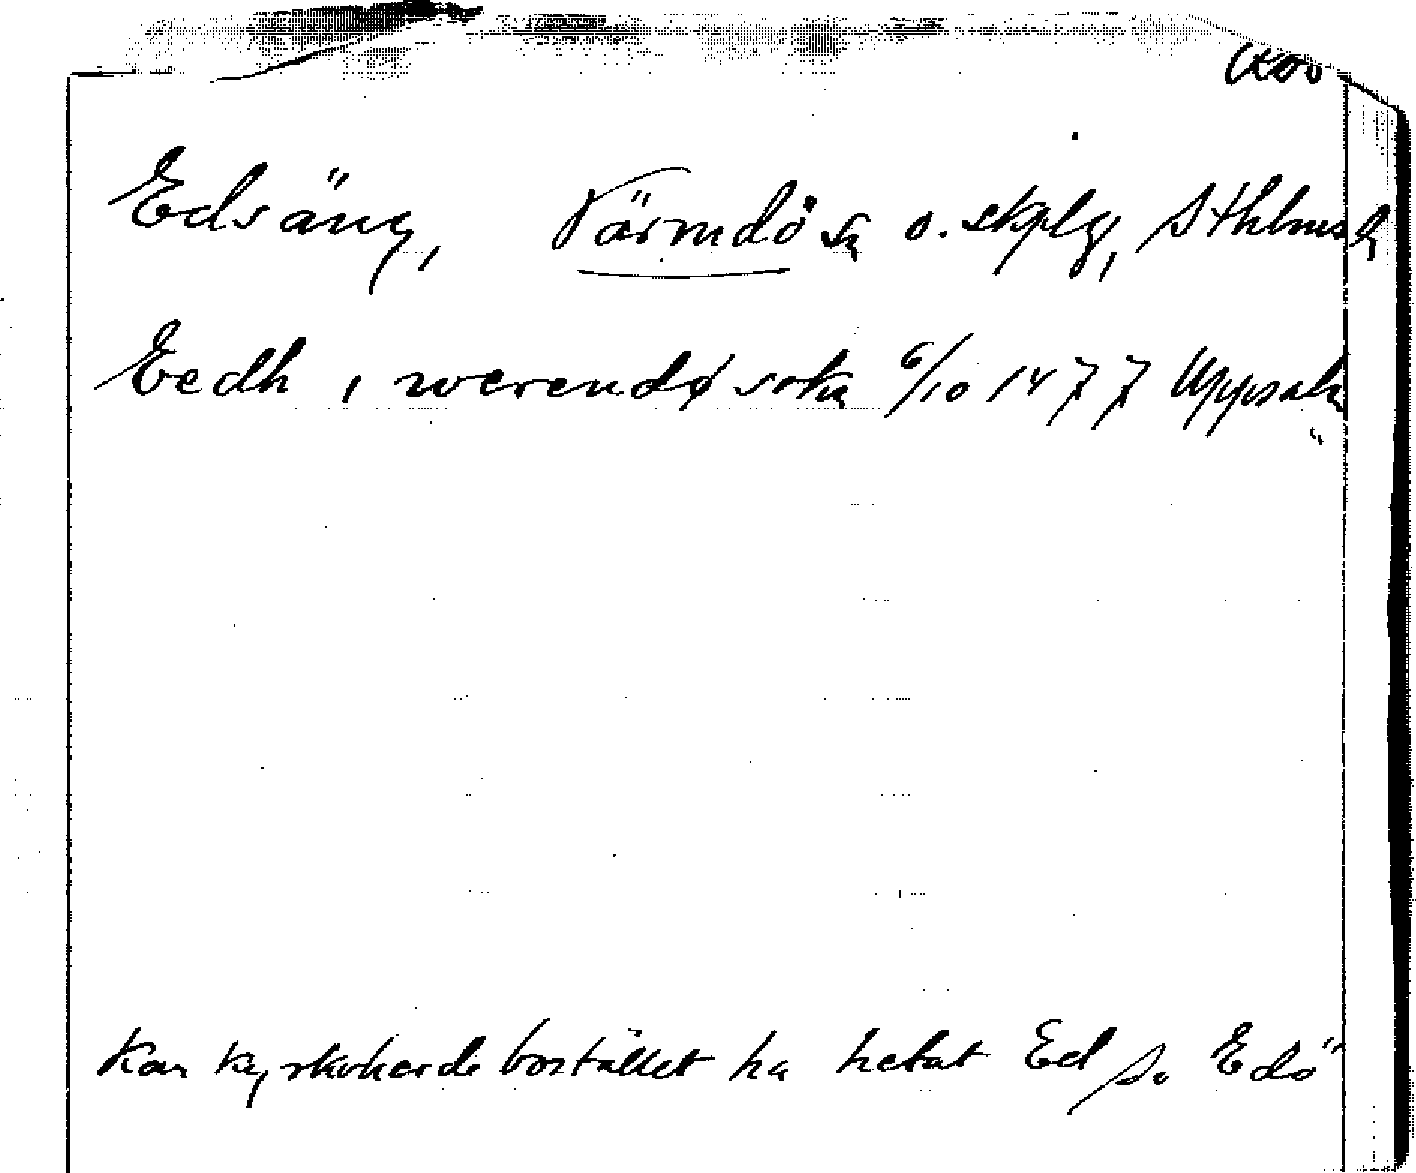 Edsäng, Värmdö sn o. skplg, Sthlms l
Eedh i werendø sokn 6/10 1477 Uppsala
Kan kyrkoherdebostället ha hetat Ed s. Edö